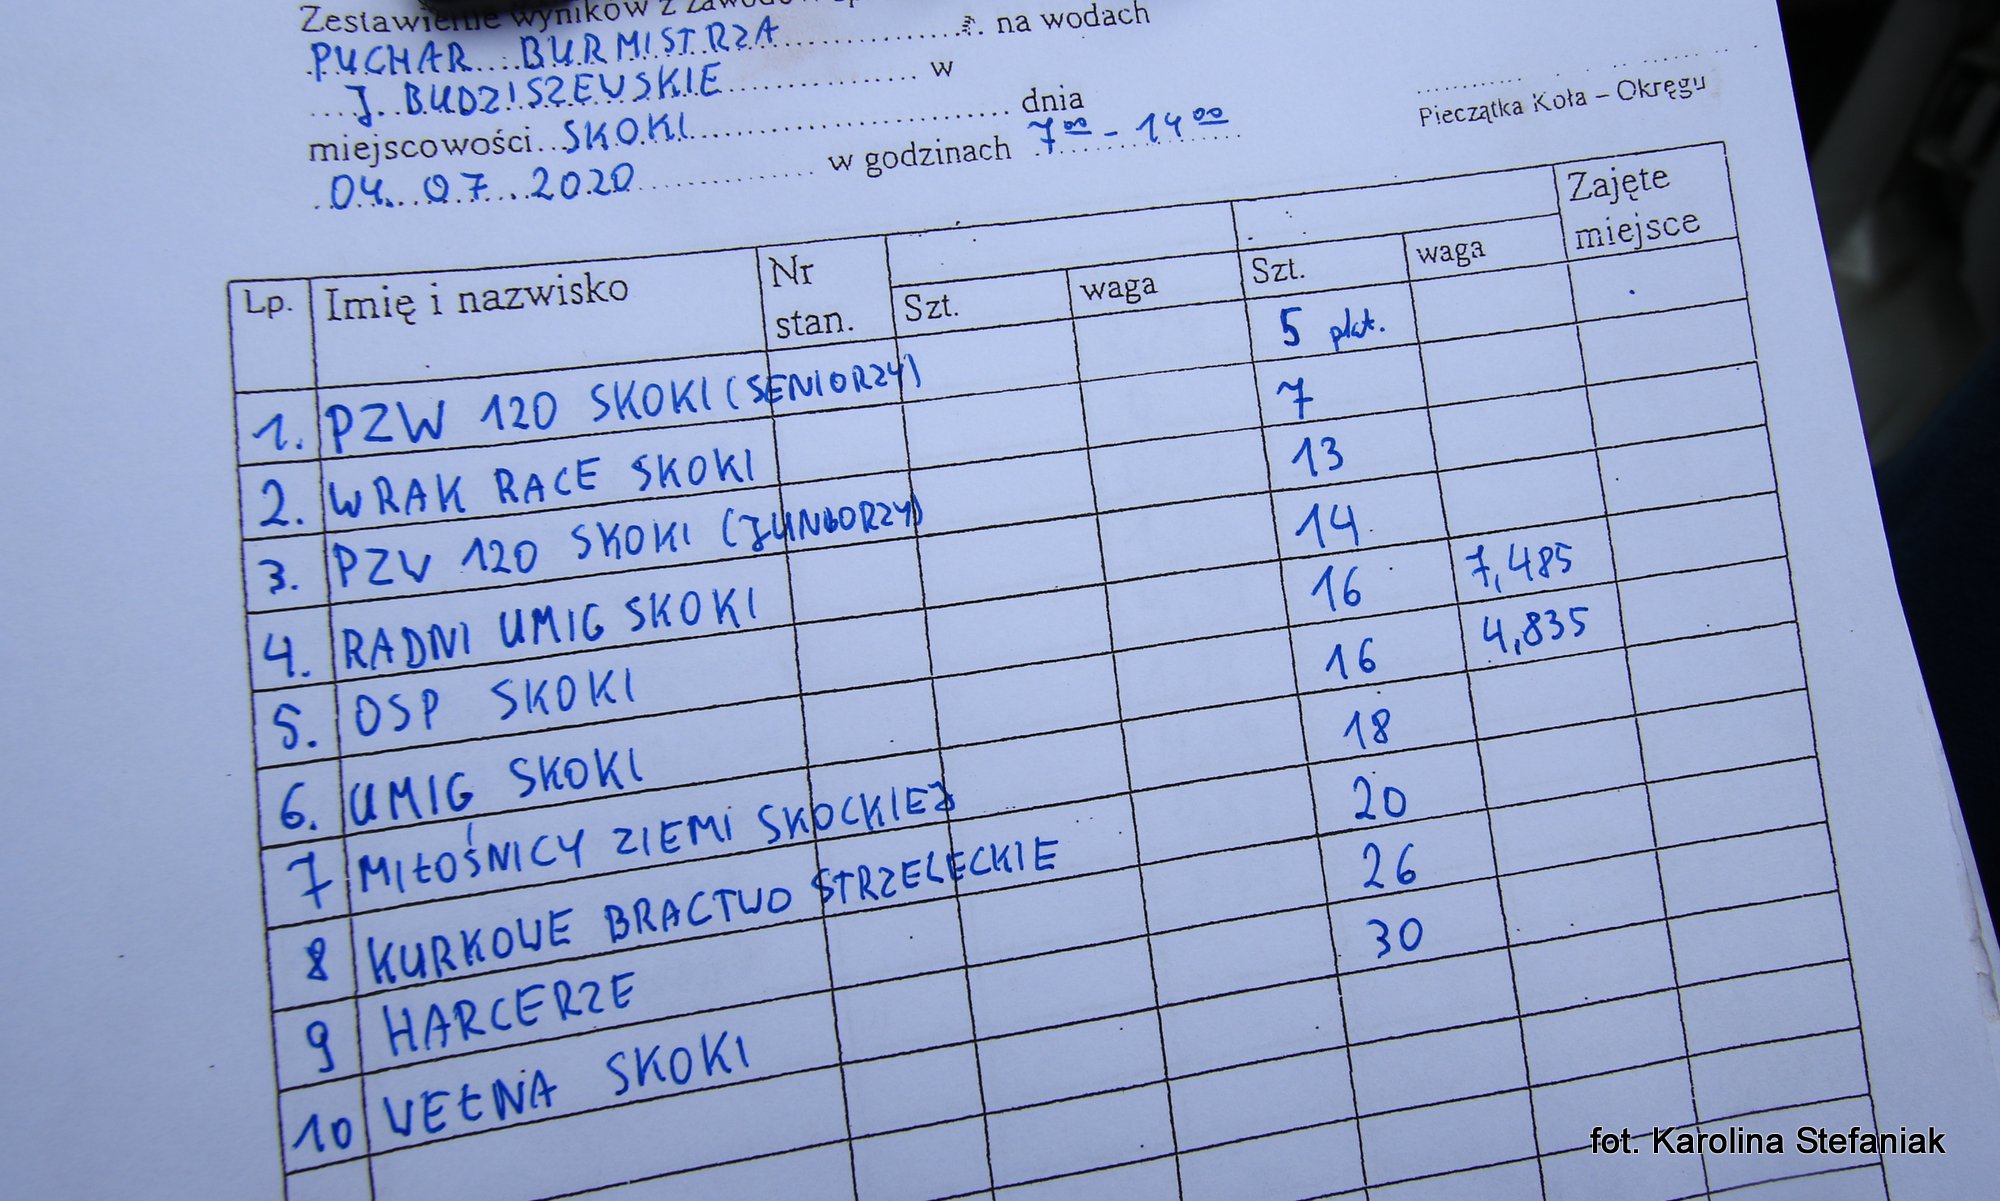 Zestawienie wyników z zawodów
PUCHAR BURMISTRZA na wodach
J. BUDZISZEWSKIE w
miejscowości SKOKI dnia
04. 07. 2020 w godzinach 7⁰⁰ - 14⁰⁰
Pieczątka Koła – Okręgu
Lp. Imię i nazwisko Nr stan. Szt. waga Szt. waga Zajęte miejsce
1. PZW 120 SKOKI (SENIORZY) 5 pkt.
2. WRAK RACE SKOKI 7
3. PZW 120 SKOKI (JUNIORZY) 13
4. RADNI UMIG SKOKI 14
5. OSP SKOKI 16 7,485
6. UMIG SKOKI 16 4,835
7 MIŁOŚNICY ZIEMI SKOCKIEJ 18
8 KURKOWE BRACTWO STRZELECKIE 20
9 HARCERZE 26
10 WEŁNA SKOKI 30
fot. Karolina Stefaniak